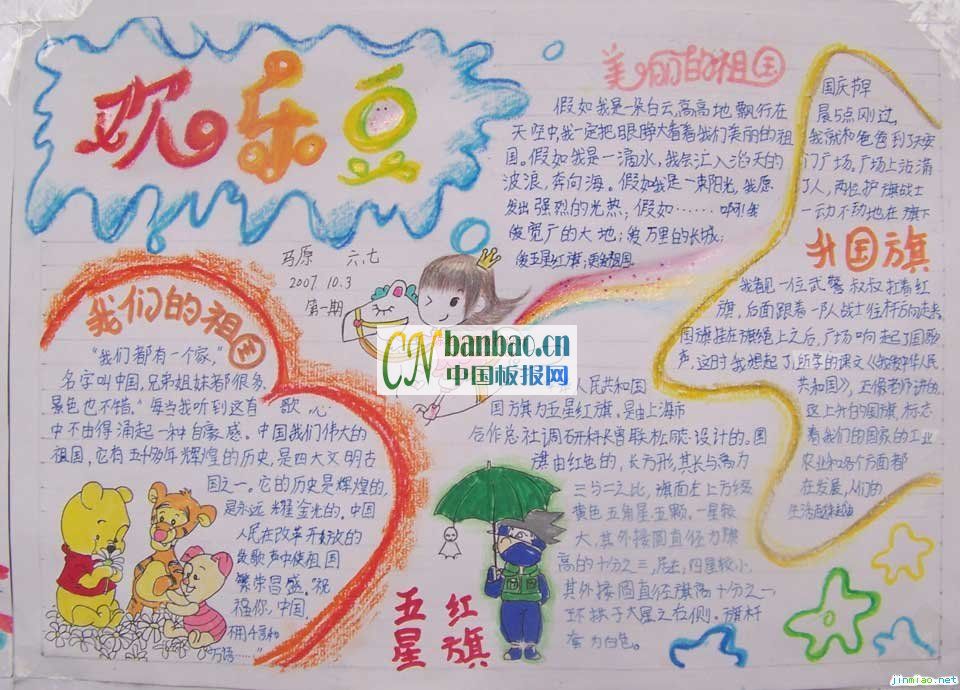 欢乐豆
马原 六.七
2007.10.3
第一期
美丽的祖国
假如我是一朵白云,高高地飘行在
天空中,我一定把眼睁大看着我们美丽的祖
国。假如我是一滴水,我会汇入滔天的
波浪,奔向海。假如我是一束阳光,我愿
发出强烈的光热;假如……啊!我
爱宽广的大地;爱万里的长城;
爱五星红旗;更爱祖国
国庆节早
晨5点刚过,
我就和爸爸到天安
门广场。广场上站满
了人,两位护旗战士
一动不动地在旗下
升国旗
我看见一位武警叔叔扛着红
旗,后面跟着一队战士往杆方向走来
国旗挂在旗绳上之后,广场响起了国歌
声,这时我想起了所学的课文《
共和国》,
这上升的国旗,标志
着我们的国家的工业
农业和各个方面都
在发展,人们的
生活越来越
我们的祖国
“我们都有一个家,
名字叫中国,兄弟姐妹都很多,
景色也不错。”每当我听到这首歌,心
中不由得涌起一种自豪感。中国我们伟大的
祖国,它有五千多年辉煌的历史,是四大文明古
国之一。它的历史是辉煌的,
是永远耀金光的。中国
人民在改革开放的
歌声中使祖国
繁荣昌盛。祝
福你,中国。
万语……”
CN banbao.cn
中国板报网
人民共和国
国旗为五星红旗,是由上海市
合作总社调研科长曾联松 设计的。国
旗由红色的,长方形,其长与高为
三与二之比,旗面左上方缀
黄色五角星五颗。一星较
大,其外接圆直径为旗
高的十分之三,居左,四星较小,
其外接圆直径旗高十分之一,
环拱于大星之右侧。旗杆
套为白色。
五星红旗
jinmiao.net